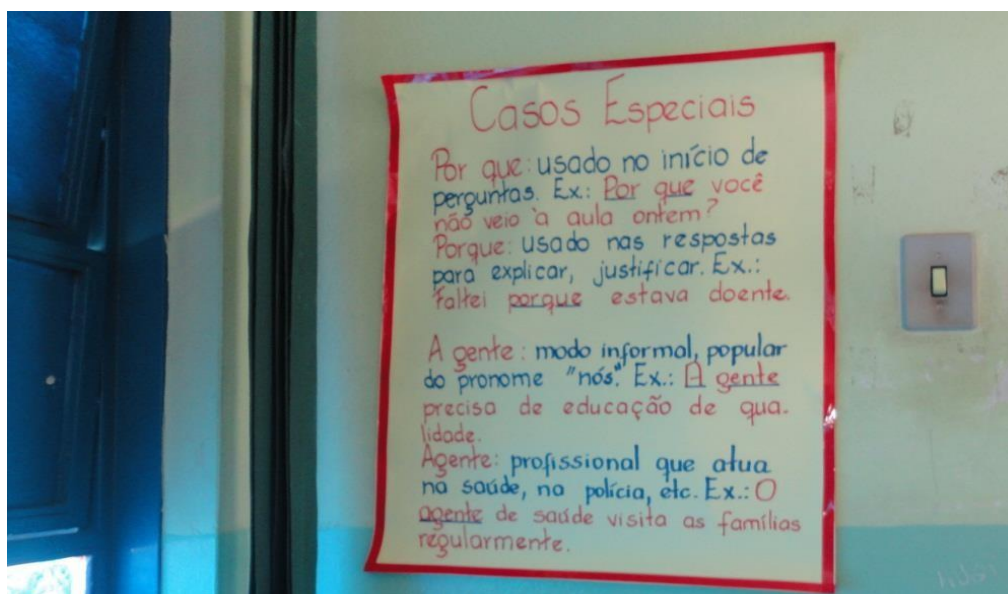 Casos Especiais
Por que: usado no início de
perguntas. Ex.: Por que você
não veio à aula ontem?
Porque: usado nas respostas
para explicar, justificar. Ex.:
Faltei porque estava doente.
A gente: modo informal, popular
do pronome "nós". Ex.: A gente
precisa de educação de qua-
lidade.
Agente: profissional que atua
na saúde, na polícia, etc. Ex.: O
agente de saúde visita as famílias
regularmente.